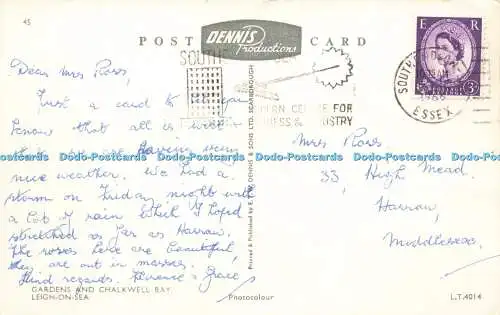 45
POST CARD
DENNIS
Productions
E R
POSTAGE
3D
SOUTHE
SEA
ESSEX
CENTRE FOR
BUSINESS & INDUSTRY
Dear Mrs Ross,
Just a card to let you
know that all is well
having very
nice weather. We had a
storm on Friday night with
a lot of rain which I hope
stretched as far as Harrow.
The roses here are beautiful,
they are out in masses.
Kind regards. Florence & Grace
Mrs Ross
33, High Mead,
Harrow,
Middlesex.
Printed & Published by E.T.W. DENNIS & SONS LTD. SCARBOROUGH
GARDENS AND CHALKWELL BAY
LEIGH-ON-SEA
Photocolour
L.T.4014
Dodo-Postcards Dodo-Postcards Dodo-Postcards Dodo-Postcards Dodo-Postcards Dodo-Postcards